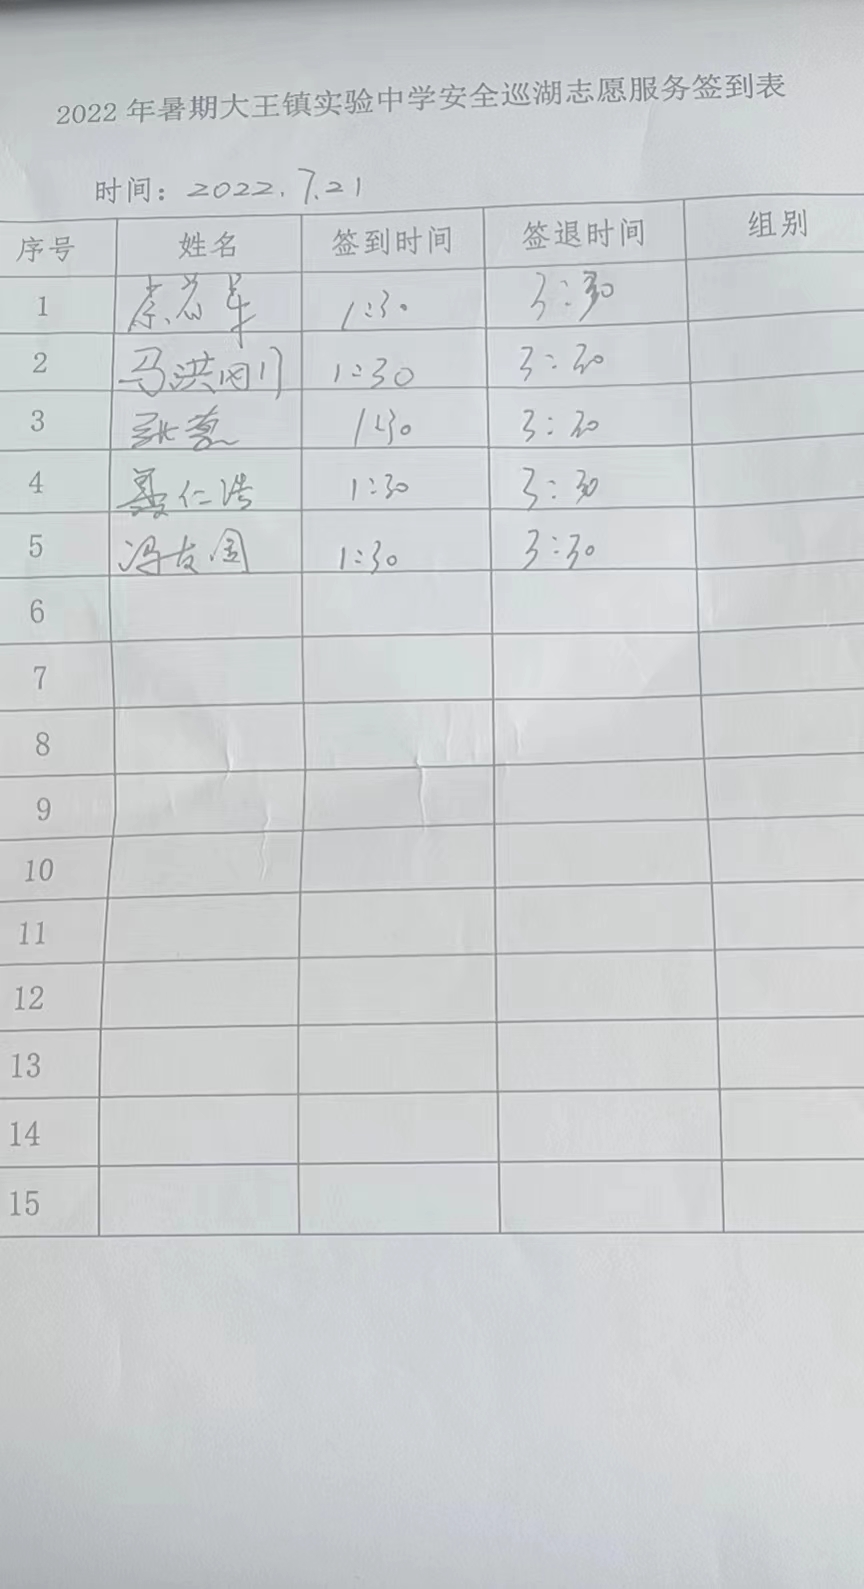 2022年暑期大王镇实验中学安全巡湖志愿服务签到表
时间：2022.7.21
序号 姓名 签到时间 签退时间 组别
1 1:30 3:30
2 马洪刚 1:30 3:30
3 1:30 3:30
4 聂仁浩 1:30 3:30
5 冯友国 1:30 3:30
6
7
8
9
10
11
12
13
14
15